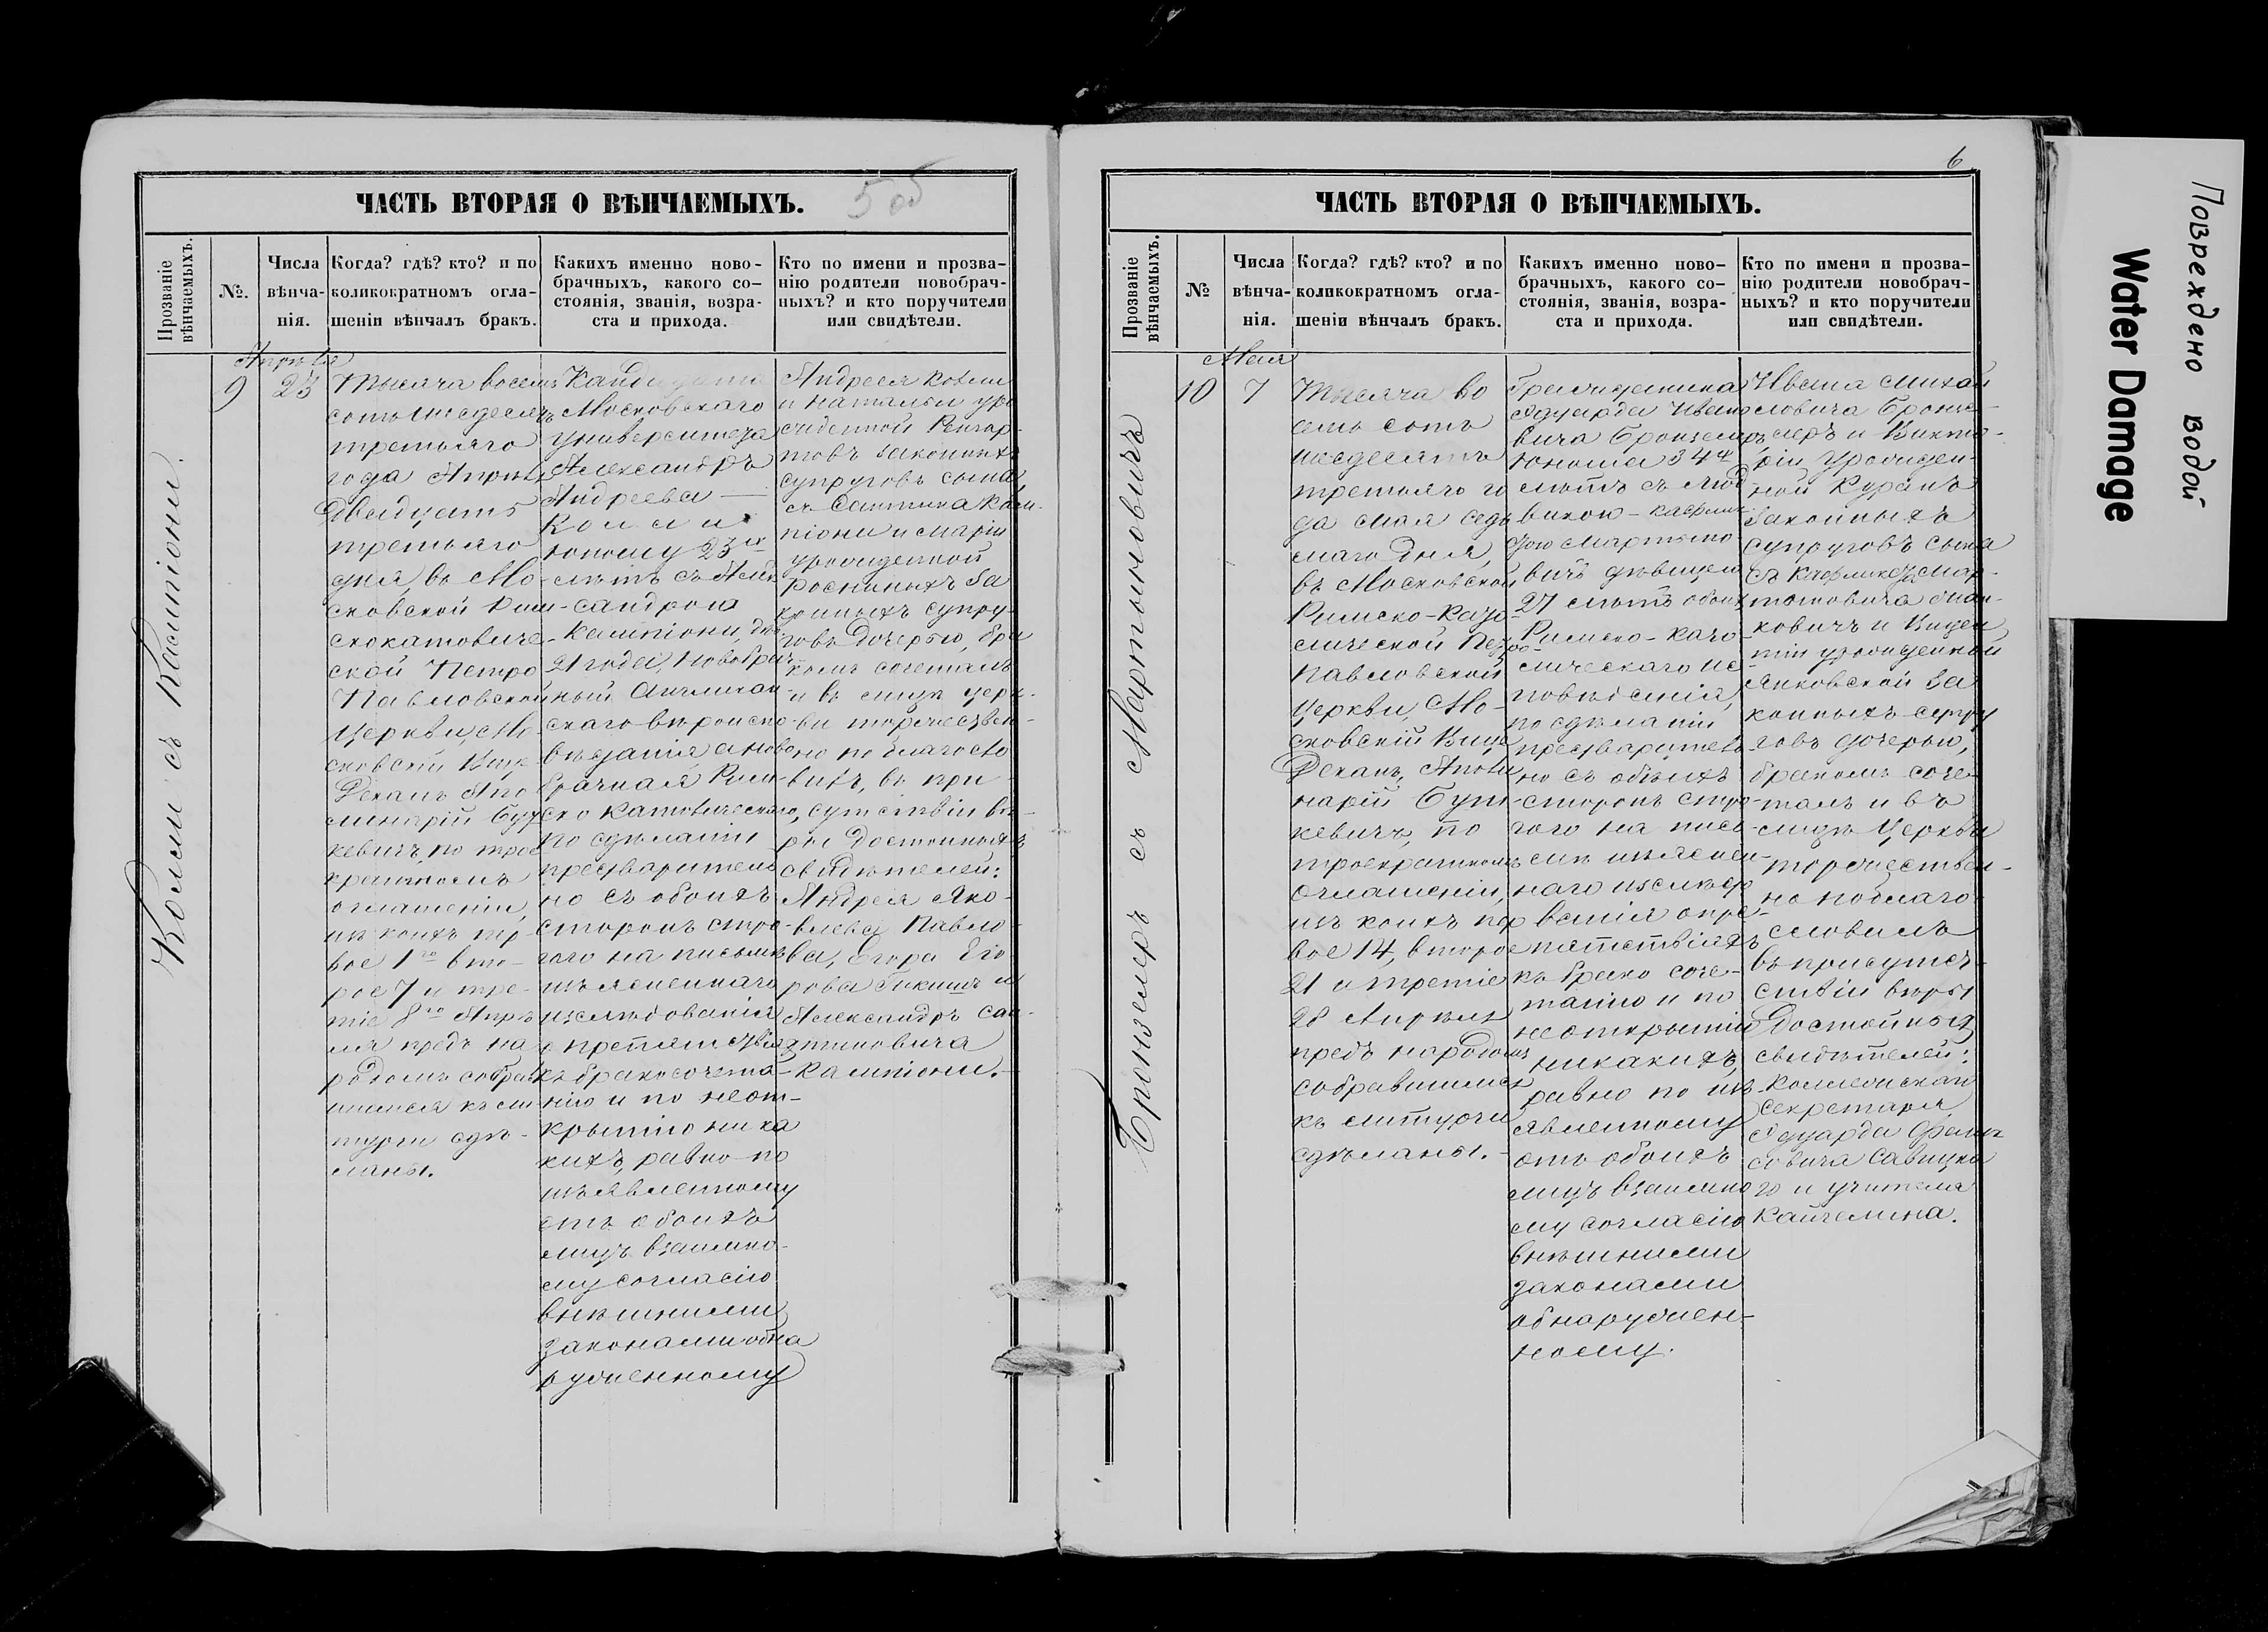 5 об
ЧАСТЬ ВТОРАЯ О ВѢНЧАЕМЫХЪ.
Прозваніе вѣнчаемыхъ.
№.
Числа вѣнча-нія.
Когда? гдѣ? кто? и по
коликократномъ огла-
шеніи вѣнчалъ бракъ.
Какихъ именно ново-
брачныхъ, какого со-
стоянія, званія, возра-
ста и прихода.
Кто по имени и прозва-
нію родители новобрач-
ныхъ? и кто поручители
или свидѣтели.
Колли съ Кампіони.
Апрѣля
9
23
Тысяча восемь
сотъ шесдесятъ
третьяго
года Апрѣля
двадцать
третьяго
дня, въ Мо-
сковской Рим-
скокатоличе-
ской Петро
Павловской
Церкви, Мо-
сковскій Вице
Деканъ Апо
линарій Бут
кевичъ, по трое
кратномъ
оглашеніи,
изъ коихъ пер
вое 1го вто-
рое 7 и тре-
тіе 8го Апрѣ
ля предъ на
родомъ собрав
шимся къ ли
тургіи сдѣ-
ланы.
Кандидата
Московскаго
Университета
Александръ
Андреева
Колли
юношу 23хъ
лѣтъ съ Алек
сандрою
Кампіони, дѣв.
21 года, новобрач
ный Англикан
скаго вѣроиспо-
вѣданія а ново
брачная Рим-
ско католическаго,
по сдѣланіи
предваритель
но съ обоихъ
сторонъ стро-
гого на письмѣ
изъясненнаго
изслѣдованія
о препятствіяхъ
къ бракосочета-
нію и по неот-
крытію ника
кихъ, равно по
изъявленному
отъ обоихъ
лицъ взаимно-
му согласію
внѣшними
законами обна
руженному
Андрея Колли
и Натальи уро
жденной Рейнгар-
товъ законныхъ
супруговъ сына,
съ Сантина Кам-
піони и Маріи
урожденной
законныхъ супру-
говъ дочерью, бра
комъ сочеталъ
и въ лицѣ Церк-
ви торжествен-
но благосло
вилъ, въ при-
сутствіи вѣ-
ры достойныхъ
свидѣтелей:
Андрея Яко-
влева Павло
ва, Егора Его
рова и
Александръ Сан-
тиновича
Кампіони.
6
ЧАСТЬ ВТОРАЯ О ВѢНЧАЕМЫХЪ.
Прозваніе вѣнчаемыхъ.
№
Числа вѣнча-нія.
Когда? гдѣ? кто? и по
коликократномъ огла-
шеніи вѣнчалъ бракъ.
Какихъ именно ново-
брачныхъ, какого со-
стоянія, званія, возра-
ста и прихода.
Кто по имени и прозва-
нію родители новобрач-
ныхъ? и кто поручители
или свидѣтели.
Бронземеръ съ Мартыновичъ
Мая
10
7
Тысяча во
семь сотъ
шесдесятъ
третьяго го
да Мая седь
маго дня,
въ Московской
Римско-Като-
лической Петро-
Павловской
Церкви, Мо-
сковскій Вице
Деканъ, Аполи
нарій Бут-
кевичъ, по
троекратномъ
оглашеніи,
изъ коихъ пер
вое 14, второе
21 и третіе
28 Апрѣля
предъ народомъ
собравшимся
къ литургіи
сдѣланы.
Гражданина
Эдуарда Ивано
вича Бронземеръ
юноша 34х
лѣтъ съ Люд
викою
Мартыно
вичъ дѣвицею
27 лѣтъ обоихъ
Римско-Като
лическаго ис-
повѣданія,
по сдѣланіи
предваритель
но съ обѣихъ
сторонъ стро-
гого на пись-
мѣ изъяснен-
наго изслѣдо
ванія о пре-
пятствіяхъ
къ брако соче-
танію и по
неоткрытіи
никакихъ,
равно по изъ-
явленному
отъ обоихъ
лицъ взаимно
му согласію
внѣшними
законами
обнаружен-
ному.
Ивана Михай
ловича Бронзе-
меръ и Викто-
ріи урожден-
ной Куранъ
законныхъ
супруговъ сына
съ Мар-
тиновича
и Викен
тіи урожденной
Янковской за
конныхъ супру
говъ дочерью,
бракомъ соче
талъ и въ
лицѣ Церкви
торжествен-
но поблаго
словилъ
въ присутст-
ствіи вѣры
достойныхъ
свидѣтелей:
Коллежскаго
Секретаря
Эдуарда
Савицка
го и учителя
Кайгелина.
Повреждено водой
Water Damage